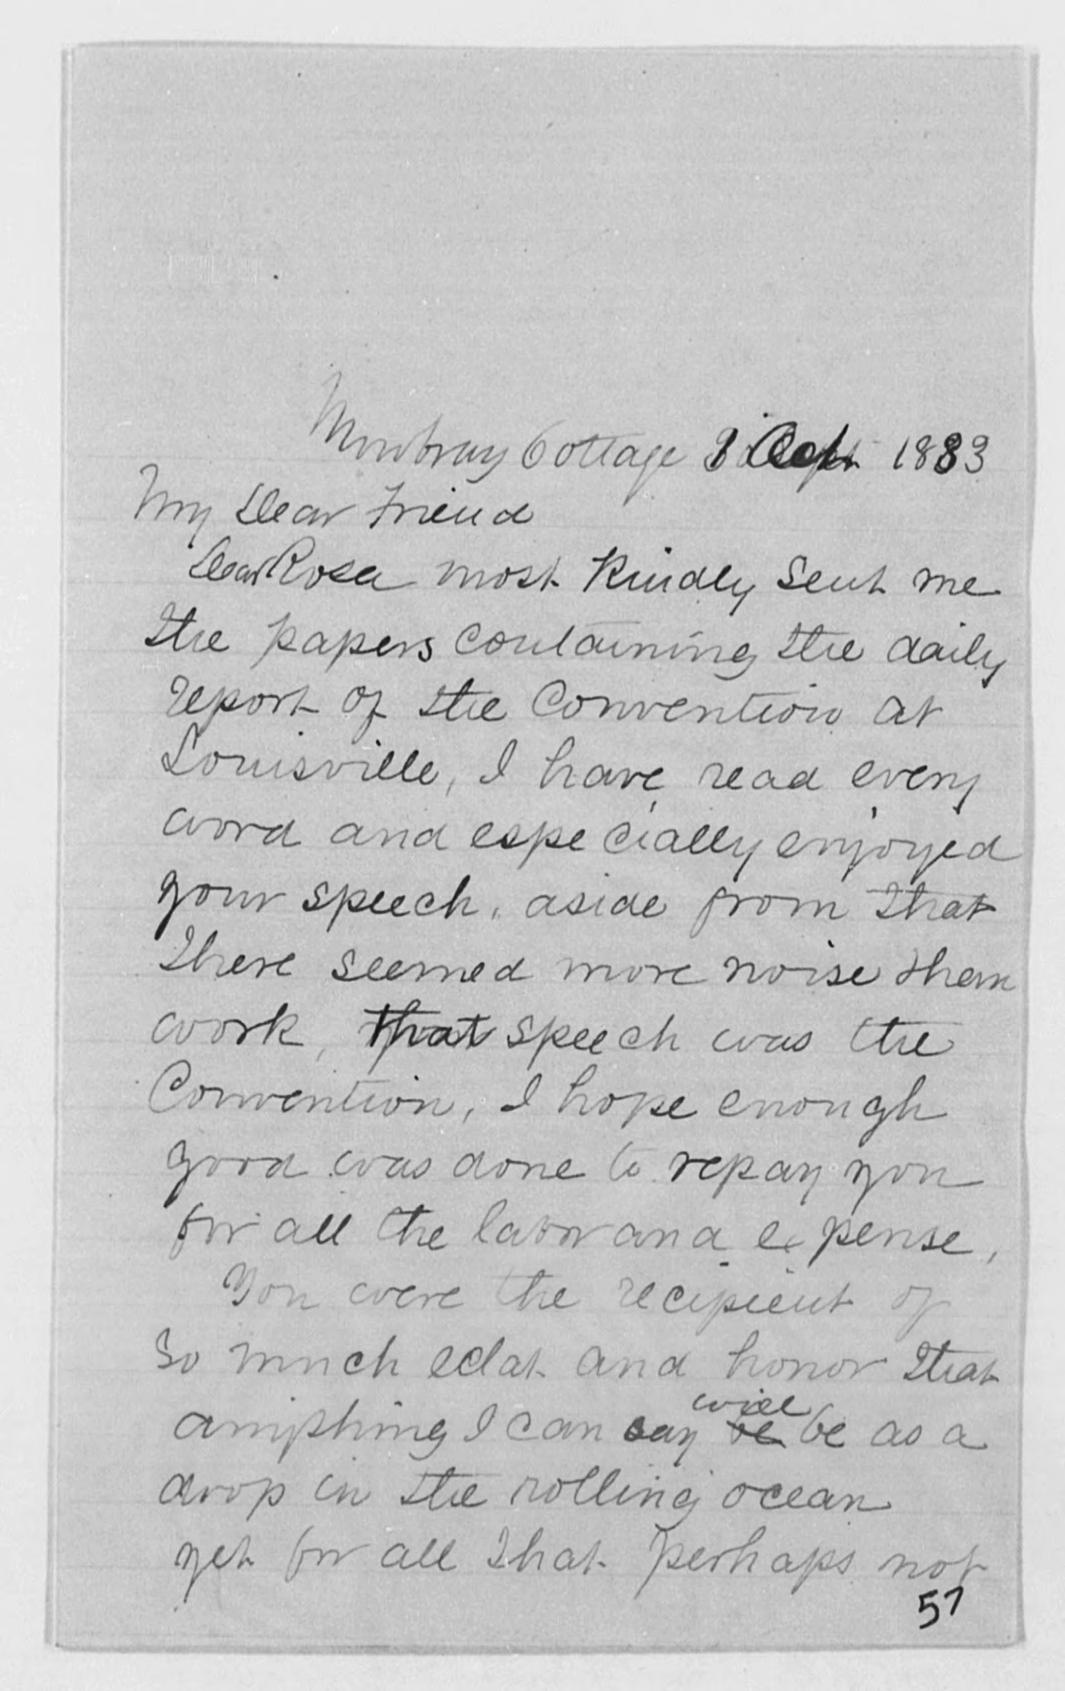 Mowbray Cottage 8 Oct 1883
My Dear Friend
Dear Rosa most Kindly sent me
the papers containing the daily
report of the Convention at
Louisville, I have read every
word and especially enjoyed
your speech. aside from that
there seemed more noise than
work, that speech was the
Convention, I hope enough
good was done to repay you
for all the labor and expense,
You were the recipient of
so much eclat and honor that
will
anything I can say be be as a
drop in the rolling ocean
yet for all that perhaps not
57